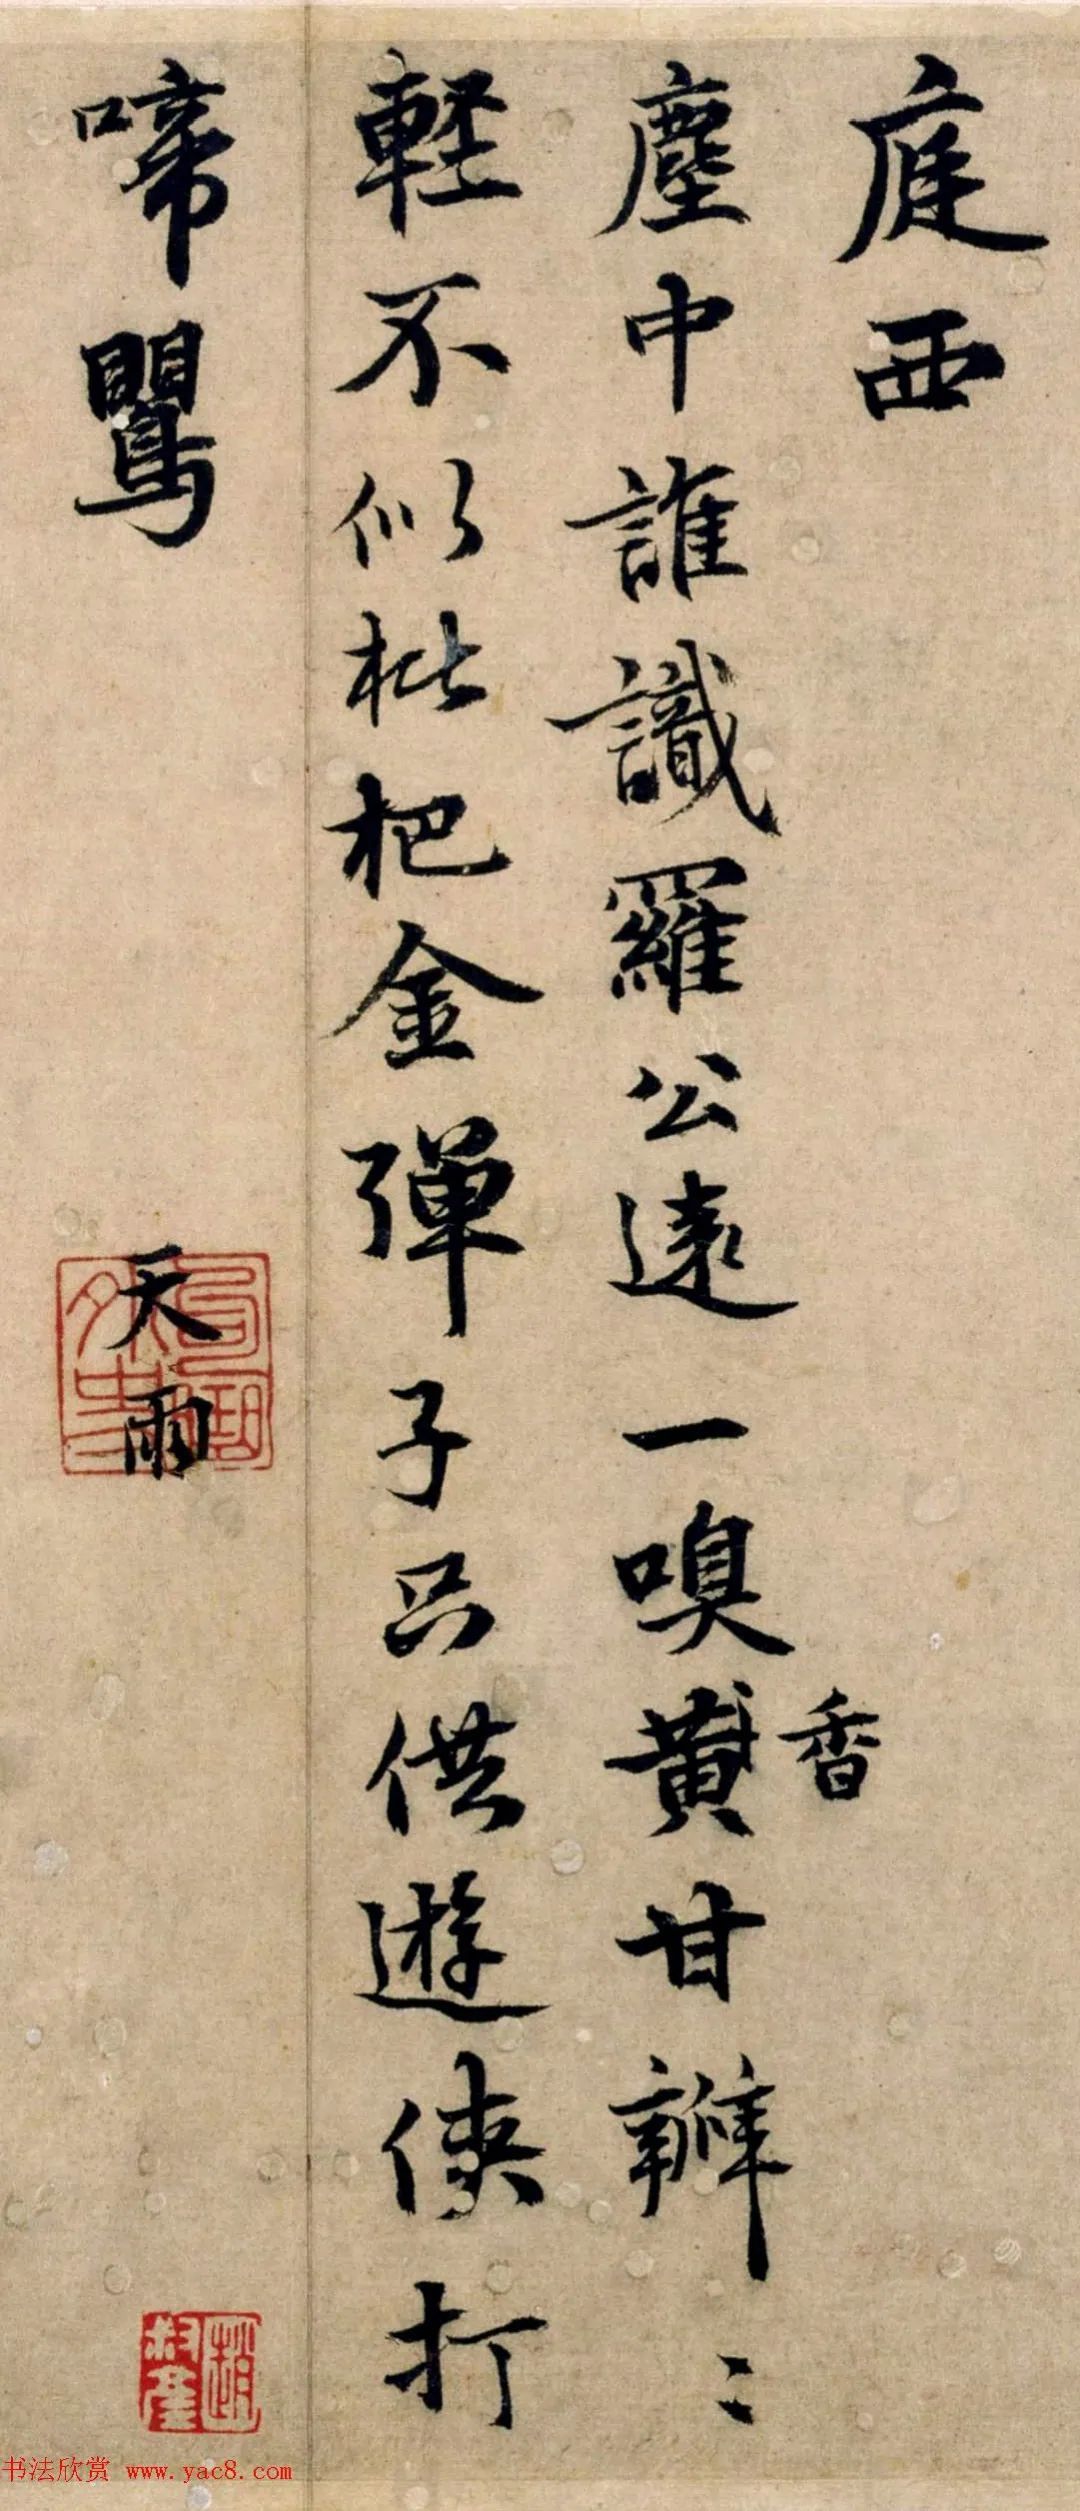 庭西
塵中誰識羅公遠一嗅黄香甘辧〻
輊不似枇杷金彈子只供遊俠打
啼鸎
天雨
趙
书法欣赏 www.yac8.com